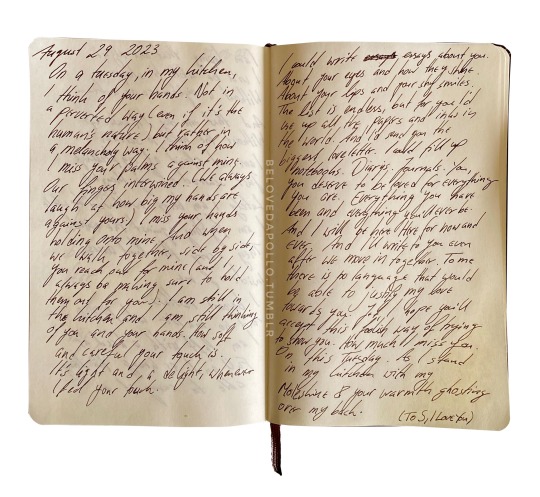 August 29 2023
On a tuesday, in my kitchen,
I think of your hands. Not in
a perverted way (even if it's the
human's nature) but rather in
a melancholy way. I think of how
I miss your palms against mine.
Our fingers intertwined. (We always
laugh at how big my hands are
against yours) I miss your hands
holding onto mine. And when
we walk, together, side by side,
you reach out for mine (and I
always be making sure to hold
them out for you). I am still in
the kitchen and I am still thinking
of you and your hands. How soft
and careful your touch is.
It's light and, a delight, whenever
I feel your touch.
I would write essays about you.
About your eyes and how they shine.
About your lips and your shy smiles.
The list is endless, but for you I'd
use up all the papers and inks in
the world. And I'd send you the
biggest loveletter. I would fill up
notebooks. Diaries, Journals. You,
you deserve to be loved for everything
you are, Everything you have
been and everything you'll ever be.
And I will be here for now and
ever. And I'll write to you even
after we move in together. To me
there is no language that would
be able to justify my love
towards you. I hope you'll
accept this foolish way of trying
to show you. How much I miss you.
On this Tuesday. As I stand
in my kitchen with my
Moleskine & your warmth ghosting
over my back.
(To S, I Love You)
BELOVEDAPOLLO.TUMBLR